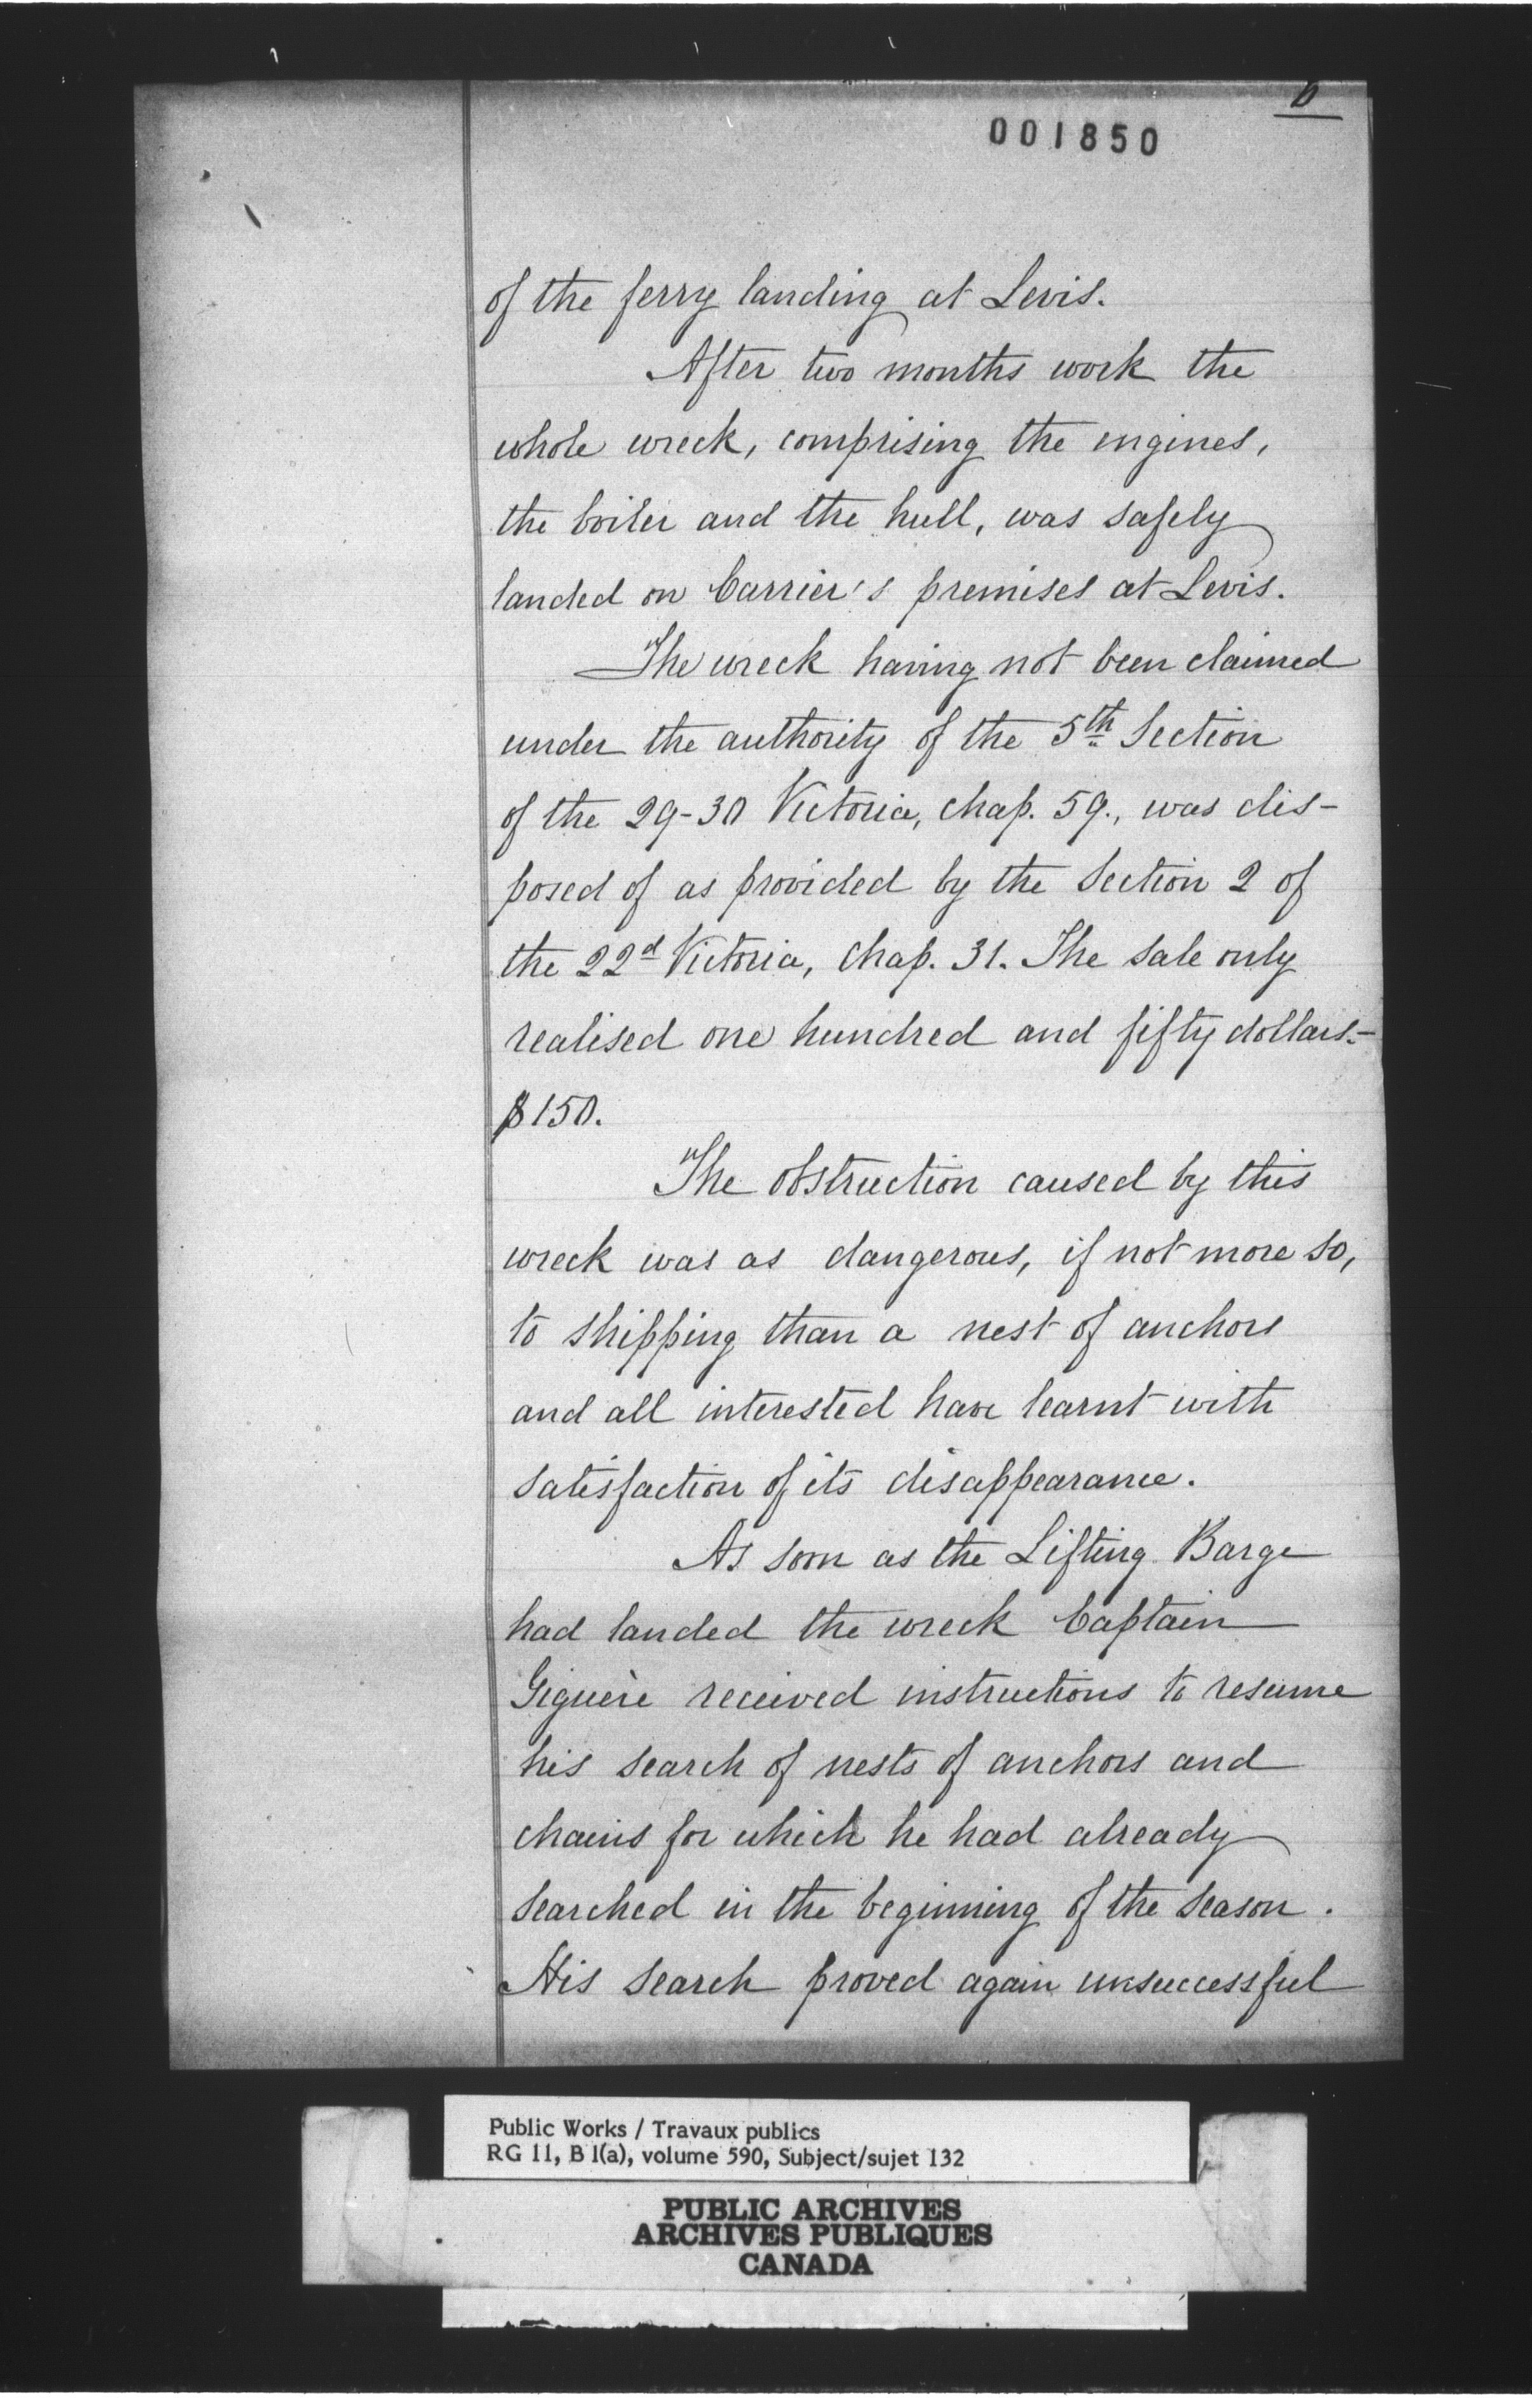 6
001850
of the ferry landing at Levis.
After two months work the
whole wreck, comprising the engines,
the boiler and the hull, was safely
landed on Carrier's premises at Levis.
The wreck having not been claimed
under the authority of the 5th Section
of the 29-30 Victoria, chap. 59., was dis-
posed of as provided by the Section 2 of
the 22d Victoria, Chap. 31. The sale only
realised one hundred and fifty dollars.-
$150.
The obstruction caused by this
wreck was as dangerous, if not more so,
to shipping than a nest of anchors
and all interested have learnt with
satisfaction of its disappearance.
As soon as the Lifting Barge
had landed the wreck Captain
Giguère received instructions to resume
his search of nests of anchors and
chains for which he had already
searched in the beginning of the season.
His search proved again unsuccessful
Public Works / Travaux publics
RG 11, B 1(a), volume 590, Subject/sujet 132
PUBLIC ARCHIVES
ARCHIVES PUBLIQUES
CANADA